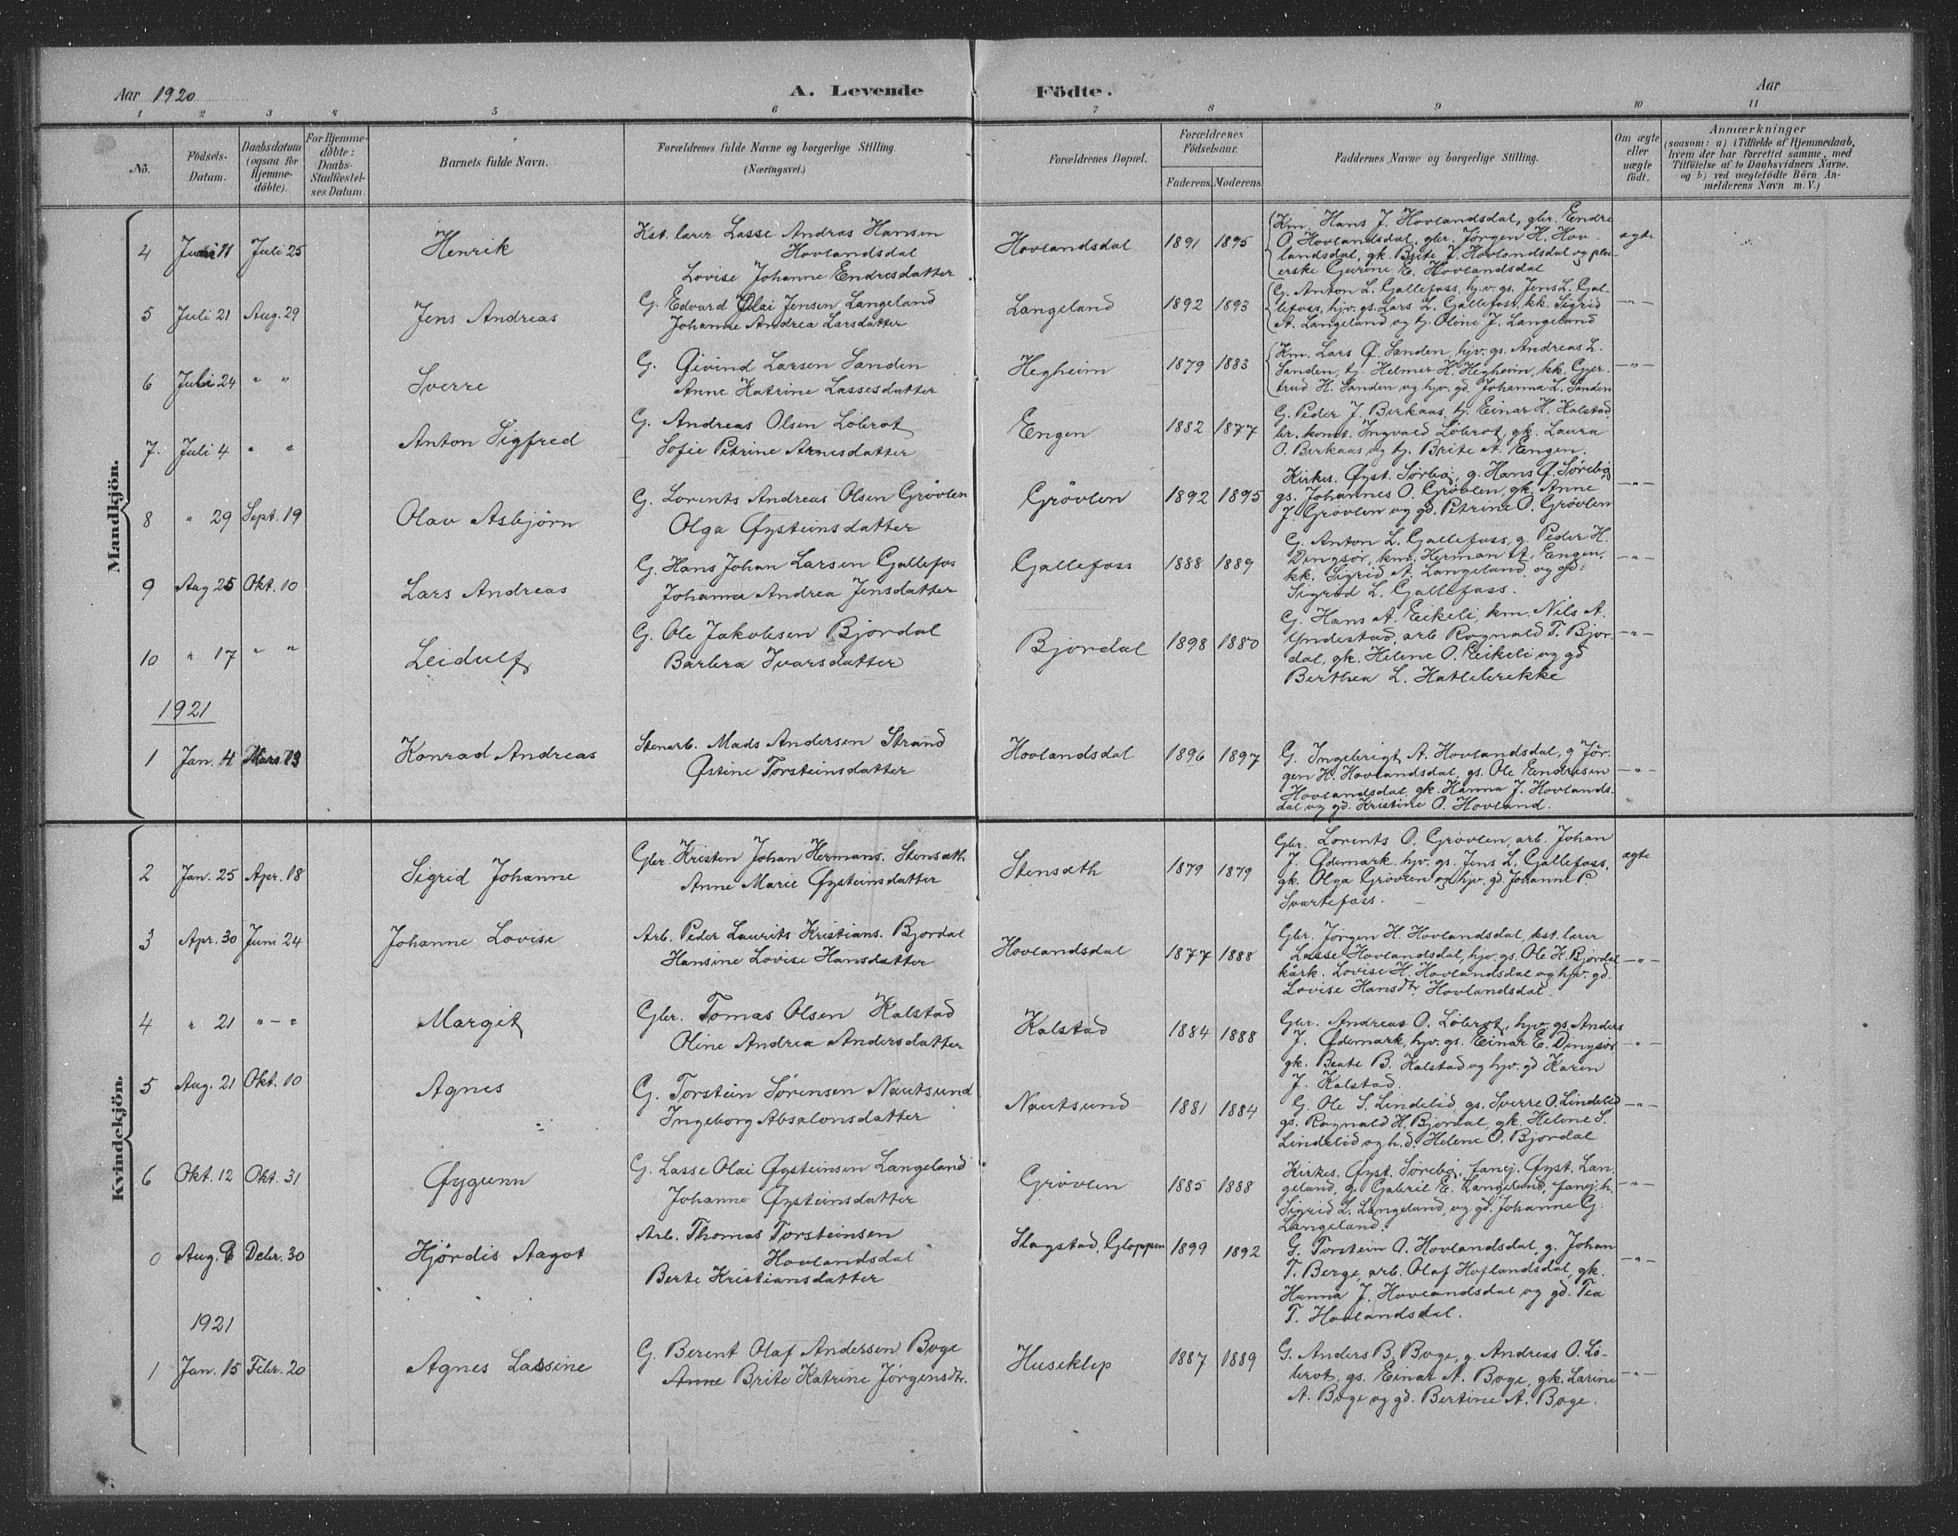 Aar 1920 A. Levende Födte. Aar
1 2 3 4 5 6 7 8 9 10 11
No. Födsels-Datum. Daabsdatum (ogsaa for Hjemmedöbte). For Hjemmedöbte: Daabs-Stadfæstelses Datum. Barnets fulde Navn. Forældrenes fulde Navne og borgerlige Stilling (Næringsvei.) Forældrenes Bopæl. Forældrenes Födselsaar. Faderens Moderens Faddernes Navne og borgerlige Stilling. Om ægte eller uægte födt. Anmærkninger (saasom: a) i Tilfælde af Hjemmedaab, hvem der har forrettet samme, med Tilföielse af to Daabsvidners Navne. og b) ved uægtefödte Börn Anmelderens Navn m. V.)
Mandkjön.
4 Juni 11 Juli 25 Henrik Kst. lærer Lasse Andreas Hansen
Hovlandsdal
Lovise Johanne Endresdatter
Hovlandsdal 1891 1895 Km. Hans J. Hovlandsdal, gbr. Endre
O. Hovlandsdal, gbr. Jørgen H. Hov-
landsdal, gk. Brite J. Hovlandsdal og plei-
erske Gurine E. Hovlandsdal
ægte
5 Juli 21 Aug. 29 Jens Andreas G. Edvard Olai Jensen Langeland
Johanne Andrea Larsdatter
Langeland 1892 1893 G. Anton L. Gallefoss, hjv. gs. Jens L. Gal-
lefoss, hjv. gs. Lars L. Gallefoss, kk. Sigrid
A. Langeland og tj. Oline J. Langeland
—"—
6 Juli 24 " " Sverre G. Øivind Larsen Sanden
Anne Katrine Lassesdatter
Hegheim 1879 1883 Km. Lars Ø. Sanden, hjv. gs. Andreas L.
Sanden, tj. Helmer H. Hegheim, kk. Gjer-
trud H. Sanden og hjv. gd. Johanna L. Sanden
—"—
7. Juli 4 " " Anton Sigfred G. Andreas Olsen Løbrot
Sofie Petrine Arnesdatter
Engen 1882 1877 G. Peder J. Birkaas, tj. Einar H. Kalstad
br. kons. Ingvald Løbrot, gk. Laura
O. Birkaas og tj. Brite A. Engen.
—"—
8 " 29 Sept. 19 Olav Asbjörn G. Lorents Andreas Olsen Grövlen
Olga Øysteinsdatter
Grövlen 1892 1895 Kirkes. Øyst. Sørbø, g. Hans Ø. Sörebø
gs. Johannes O. Grövlen, gk. Anne
J. Grövlen og gd. Petrine O. Grövlen
—"—
9 Aug 25 Okt. 10 Lars Andreas G. Hans Johan Larsen Gallefos
Johanna Andrea Jensdatter
Gallefoss 1888 1889 G. Anton L. Gallefoss, g. Peder H.
Dingsör, km. Herman A. Engen,
kk. Sigrid A. Langeland og gd.
Sigrid L. Gallefoss.
—"—
10 " 17 " " Leidulf G. Ole Jakobsen Bjordal
Barbra Ivarsdatter
Bjordal 1898 1880 G. Hans A. Eikeli, km. Nils A.
Yndestad, arb. Ragnald T. Bjor-
dal, gk. Helene O. Eikeli og gd
Berthea L. Hatlebrekke
—"—
1921
1 Jan. 4 Mars 13 Konrad Andreas Stenarb. Mads Andersen Strand
Østine Torsteinsdatter
Hovlandsdal 1896 1897 G. Ingebrigt A. Hovlandsdal, g. Jør-
gen H. Hovlandsdal, gs. Ole Endresen
Hovlandsdal, gk. Hanna J. Hovlands-
dal og gd. Kristine O. Hovland.
—"—
Kvindekjön.
2 Jan. 25 Apr. 18 Sigrid Johanne Gbr. Kristen Johan Hermans. Stensæth
Anne Marie Øysteinsdatter
Stensæth 1879 1879 Gbr. Lorents O. Grövlen, arb. Johan
J. Ødemark, hjv. gs. Jens L. Gallefoss,
gk. Olga Grövlen og hjv. gd. Johanne P.
Svartefoss.
ægte
3 Apr. 30 Juni 24 Johanne Lovise Arb. Peder Laurits Kristians. Bjordal
Hansine Lovise Hansdatter
Hovlandsdal 1877 1888 Gbr. Jørgen H. Hovlandsdal, kst. lærer
Lasse Hovlandsdal, hjv. gs. Ole H. Bjordal
kårk. Lovise H. Hovlandsdal og hjv. gd.
Lovise Hansdtr Hovlandsdal.
—"—
4 " 21 "—" Margit Gbr. Tomas Olsen Kalstad
Oline Andrea Andersdatter
Kalstad 1884 1888 Gbr. Andreas O. Löbrot, hjv. gs. Anders
J. Ødemark, hjv. gs. Einar E. Dingsør
gk. Beate B. Kalstad og hjv. gd Karen
J. Kalstad.
—"—
5 Aug. 21 Okt. 10 Agnes G. Torstein Sørensen Nautsund
Ingeborg Absalonsdatter
Nautsund 1881 1884 G. Ole S. Lindelid, gs. Sverre O. Lindelid
gs. Ragnald H. Bjordal, gk. Helene S.
Lindelid og h.d. Helene O. Bjordal
—"—
6 Okt. 12 Okt. 31 Øygunn G. Lasse Olai Øysteinsen Langeland
Johanne Øysteinsdatter
Grövlen 1885 1888 Kirkes. Øyst. Sörebø, fanej. Øyst. Lan-
geland, g. Gabriel E. Langeland, fanejh.
Sigrid L. Langeland, og gd. Johanne G.
Langeland.
—"—
0 Aug. 8 Debr. 30 Hjördis Aagot Arb. Thomas Torsteinsen
Hovlandsdal
Berte Kristiansdatter
Slagstad, Gloppen 1899 1892 G. Torstein A. Hovlandsdal, g. Johan
T. Berge, arb. Olaf Hoflandsdal, gk.
Hanna J. Hovlandsdal og gd. Tea
T. Hovlandsdal.
—"—
1921
1 Jan. 15 Febr. 20 Agnes Lassine G. Berent Olaf Andersen Boge
Anne Brite Katrine Jørgensdtr.
Huseklep 1887 1889 G. Anders B. Boge, g. Andreas O. Lö-
brot, gs. Einar A. Boge, gk. Larine
A. Boge og gd. Bertine A. Boge.
—"—